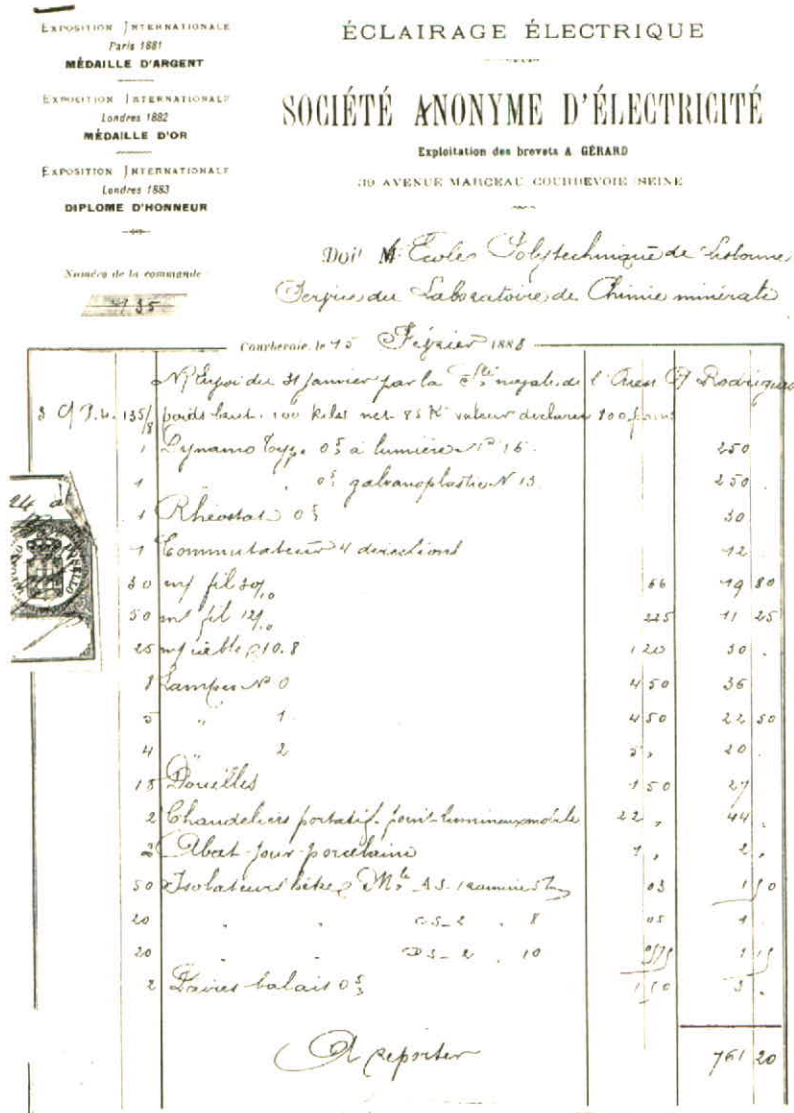 EXPOSITION INTERNATIONALE
Paris 1881
MÉDAILLE D'ARGENT
EXPOSITION INTERNATIONALE
Londres 1882
MÉDAILLE D'OR
EXPOSITION INTERNATIONALE
Londres 1883
DIPLOME D'HONNEUR
Numéro de la commande
ÉCLAIRAGE ÉLECTRIQUE
SOCIÉTÉ ANONYME D'ÉLECTRICITÉ
Exploitation des brevets A GÉRARD
39 AVENUE MARCEAU COURBEVOIE SEINE
Doit M Ecole Polytechnique de Lisbonne
Service du Laboratoire de Chimie minérale
Courbevoie, le 15 Février 1888
du 31 Janvier par la de l' Rodrigues
135/8 poids brut. 100 kilos net. 85 K valeur déclarée 800 francs
1 Dynamo type 0 à lumière N 15 250
1 galvanoplastie N 13 250
1 Rhéostat 30
1 Commutateur 4 directions 12
30 m fil 30/10 66 19 80
50 m fil 12/10 225 11 25
25 m 120 30
8 Lampes N 0 4 50 36
5 " 1 4 50 22 50
4 2 5 20
18 Douilles 1 50 27
2 Chandeliers portatif. point lumineux mobile 22 44
2 Abat-jour porcelaine 1 2
50 Isolateurs 03 1 50
20 2 8 05 1
20 2 10 1 15
2 Paires balais 1 50 3
A reporter 761 20
24